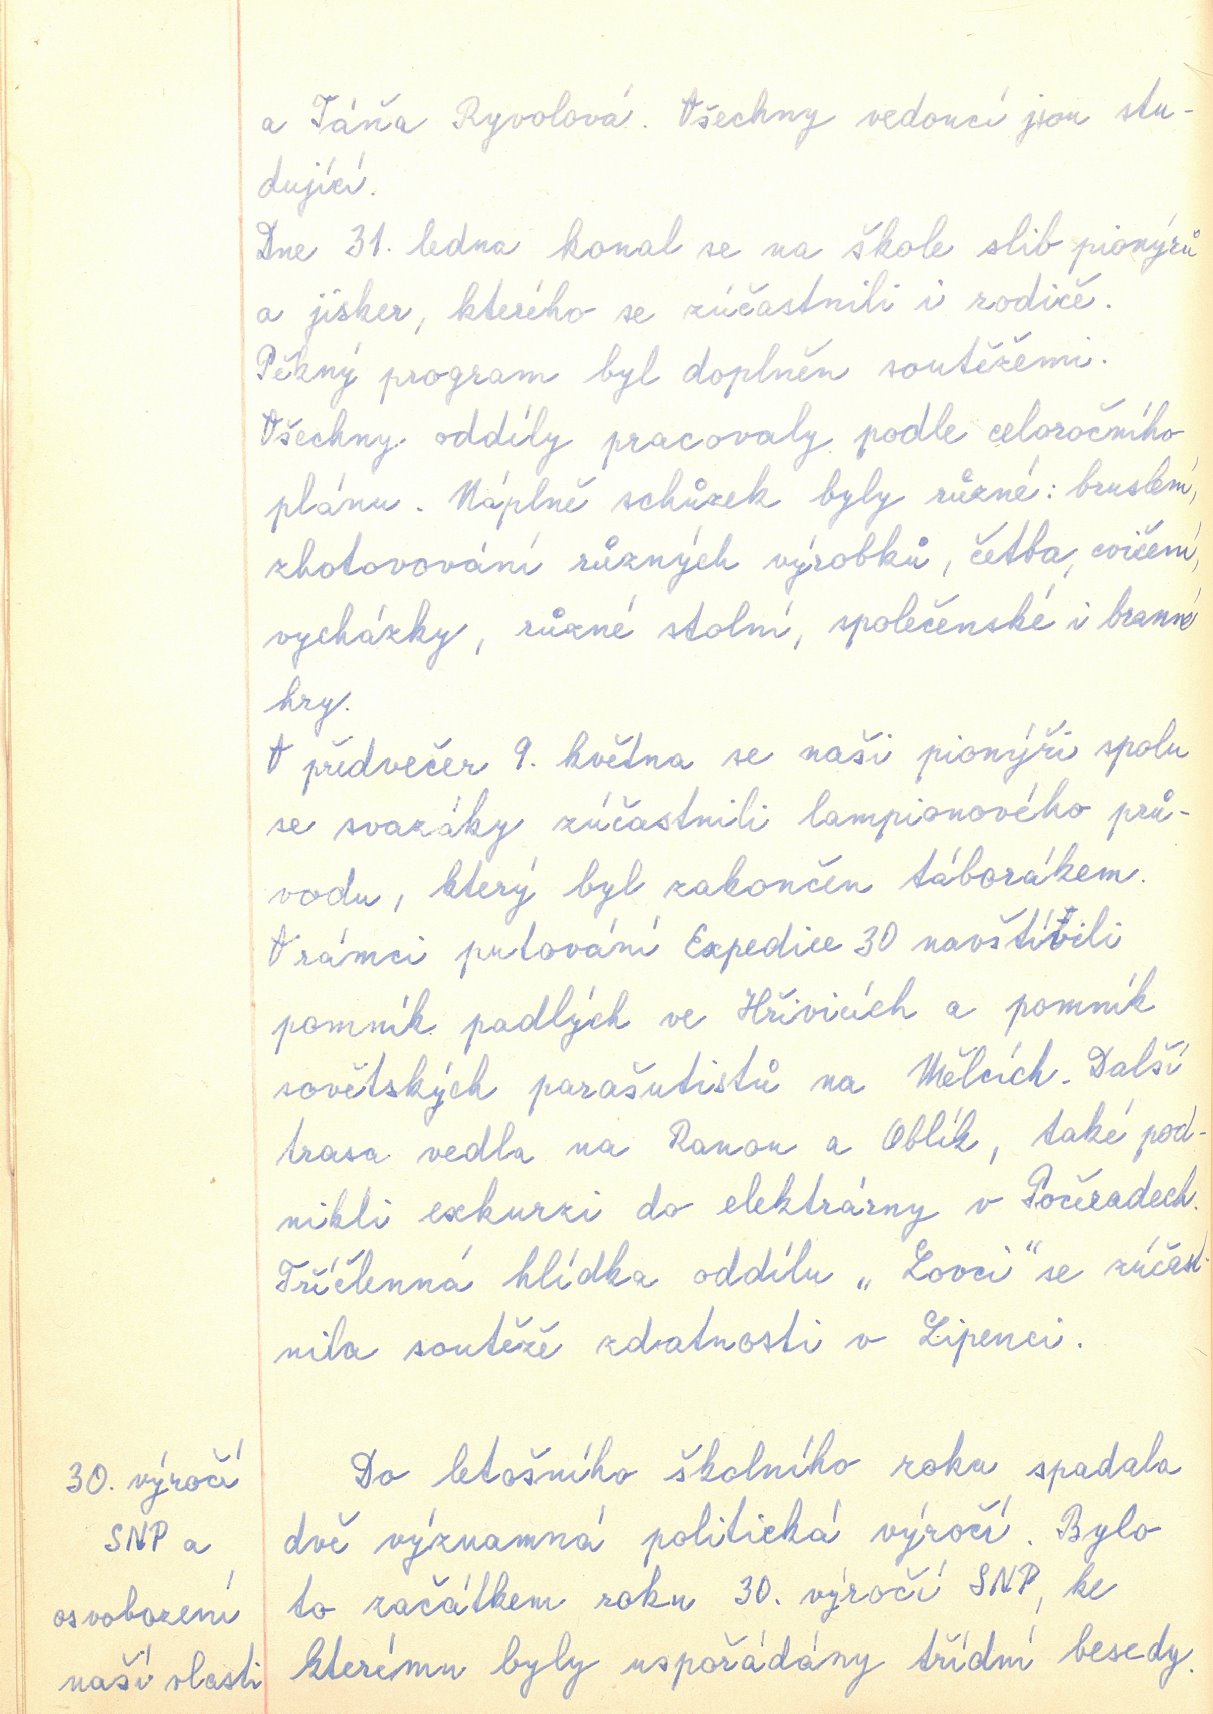 a Táňa Ryvolová. Všechny vedoucí jsou stu-
dující.
Dne 31. ledna konal se na škole slib pionýrů
a jisker, kterého se zúčastnili i rodiče.
Pěkný program byl doplněn soutěžemi.
Všechny oddíly pracovaly podle celoročního
plánu. Náplně schůzek byly různé: bruslení,
zhotovování různých výrobků, četba, cvičení,
vycházky, různé stolní, společenské i branné
hry.
V předvečer 9. května se naši pionýři spolu
se svazáky zúčastnili lampionového prů-
vodu, který byl zakončen táborákem.
V rámci putování Expedice 30 navštívili
pomník padlých ve Hřivicích a pomník
sovětských parašutistů na Mělcích. Další
trasa vedla na Ranou a Oblík, také pod-
nikli exkurzi do elektrárny v Počeradech.
Tříčlenná hlídka oddílu „Lovci" se zúčast-
nila soutěže zdatnosti v Lipenci.
30. výročí
SNP a
osvobození
naší vlasti
Do letošního školního roku spadala
dvě významná politická výročí. Bylo
to začátkem roku 30. výročí SNP, ke
kterému byly uspořádány třídní besedy.